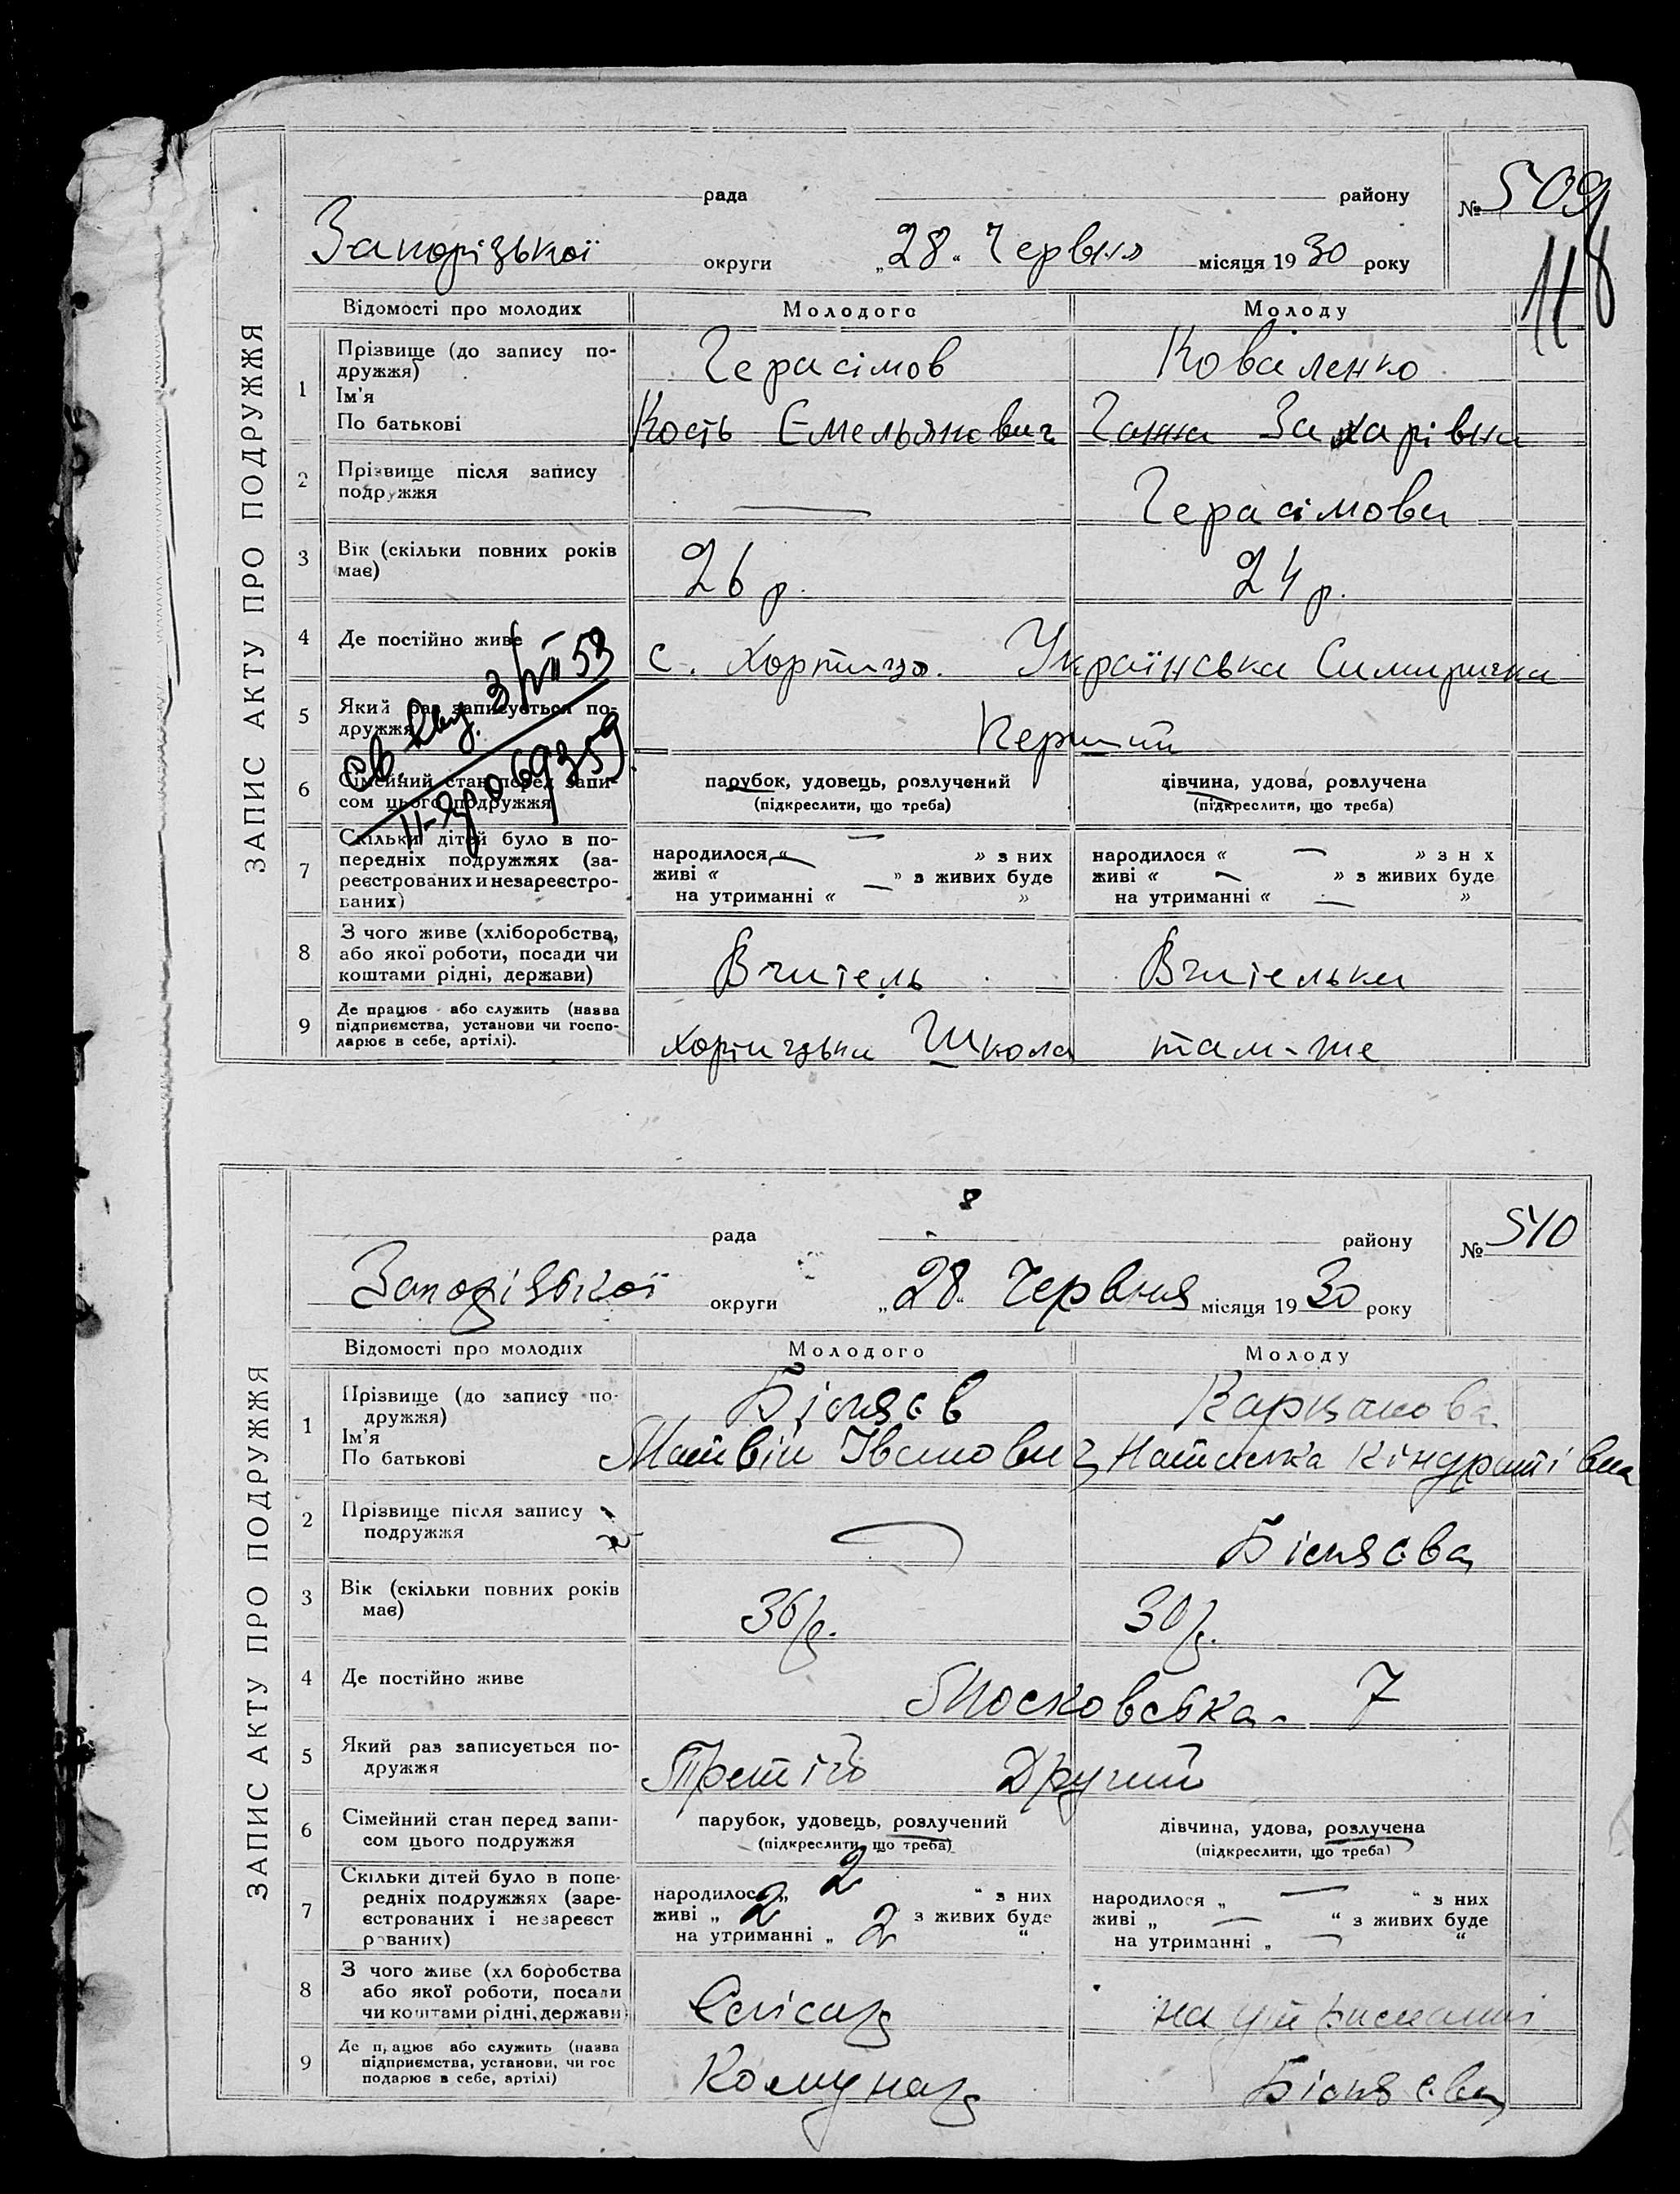 ЗАПИС АКТУ ПРО ПОДРУЖЖЯ
рада району № 509
118
Запорізької округи „28“ Червня місяця 1930 року
Відомості про молодих Молодого Молоду
1 Прізвище (до запису по-
дружжя) Герасімов Коваленко
Ім'я
По батькові Кость Емельянович Ганна Захарівна
2 Прізвище після запису
подружжя — Герасімова
3 Вік (скільки повних років
має) 26 р. 24 р.
4 Де постійно живе с. Хортиця. Українська
5 Який раз записується по-
дружжя Перший
св. 3/VII 53
069359
6 Сімейний стан перед запи-
сом цього подружжя парубок, удовець, розлучений дівчина, удова, розлучена
(підкреслити, що треба) (підкреслити, що треба)
7 Скільки дітей було в по-
передніх подружжях (за-
реєстрованих и незареєстро-
ваних)
народилося « — » з них народилося « — » з н х
живі « — » з живих буде живі « — » з живих буде
на утриманні « — » на утриманні « — »
8 З чого живе (хліборобства,
або якої роботи, посади чи
коштами рідні, держави) Вчитель Вчителька
9 Де працює або служить (назва
підприємства, установи чи госпо-
дарює в себе, артілі). Хортицька Школа там-же
ЗАПИС АКТУ ПРО ПОДРУЖЖЯ
рада району № 510
Запорізької округи „28“ Червня місяця 1930 року
Відомості про молодих Молодого Молоду
1 Прізвище (до запису по-
дружжя) Біляєв
Ім'я
По батькові Матвій Іванович Наталка Кіндратівна
2 Прізвище після запису
подружжя — Біляєва
3 Вік (скільки повних років
має) 36 р. 30 р.
4 Де постійно живе Московська. 7
5 Який раз записується по-
дружжя Третій Другий
6 Сімейний стан перед запи-
сом цього подружжя парубок, удовець, розлучений дівчина, удова, розлучена
(підкреслити, що треба) (підкреслити, що треба)
7 Скільки дітей було в попе-
редніх подружжях (заре-
єстрованих і незареєст
рованих)
народилося „ 2 “ з них народилося „ — “ з них
живі „ 2 з живих буде живі „ — “ з живих буде
на утриманні „ 2 “ на утриманні „ — “
8 З чого живе (хл боробства
або якої роботи, посади
чи коштами рідні, держави) Слісар на утриманні
9 Де працює або служить (назва
підприємства, установи, чи гос
подарює в себе, артілі) Комунар Біляєва